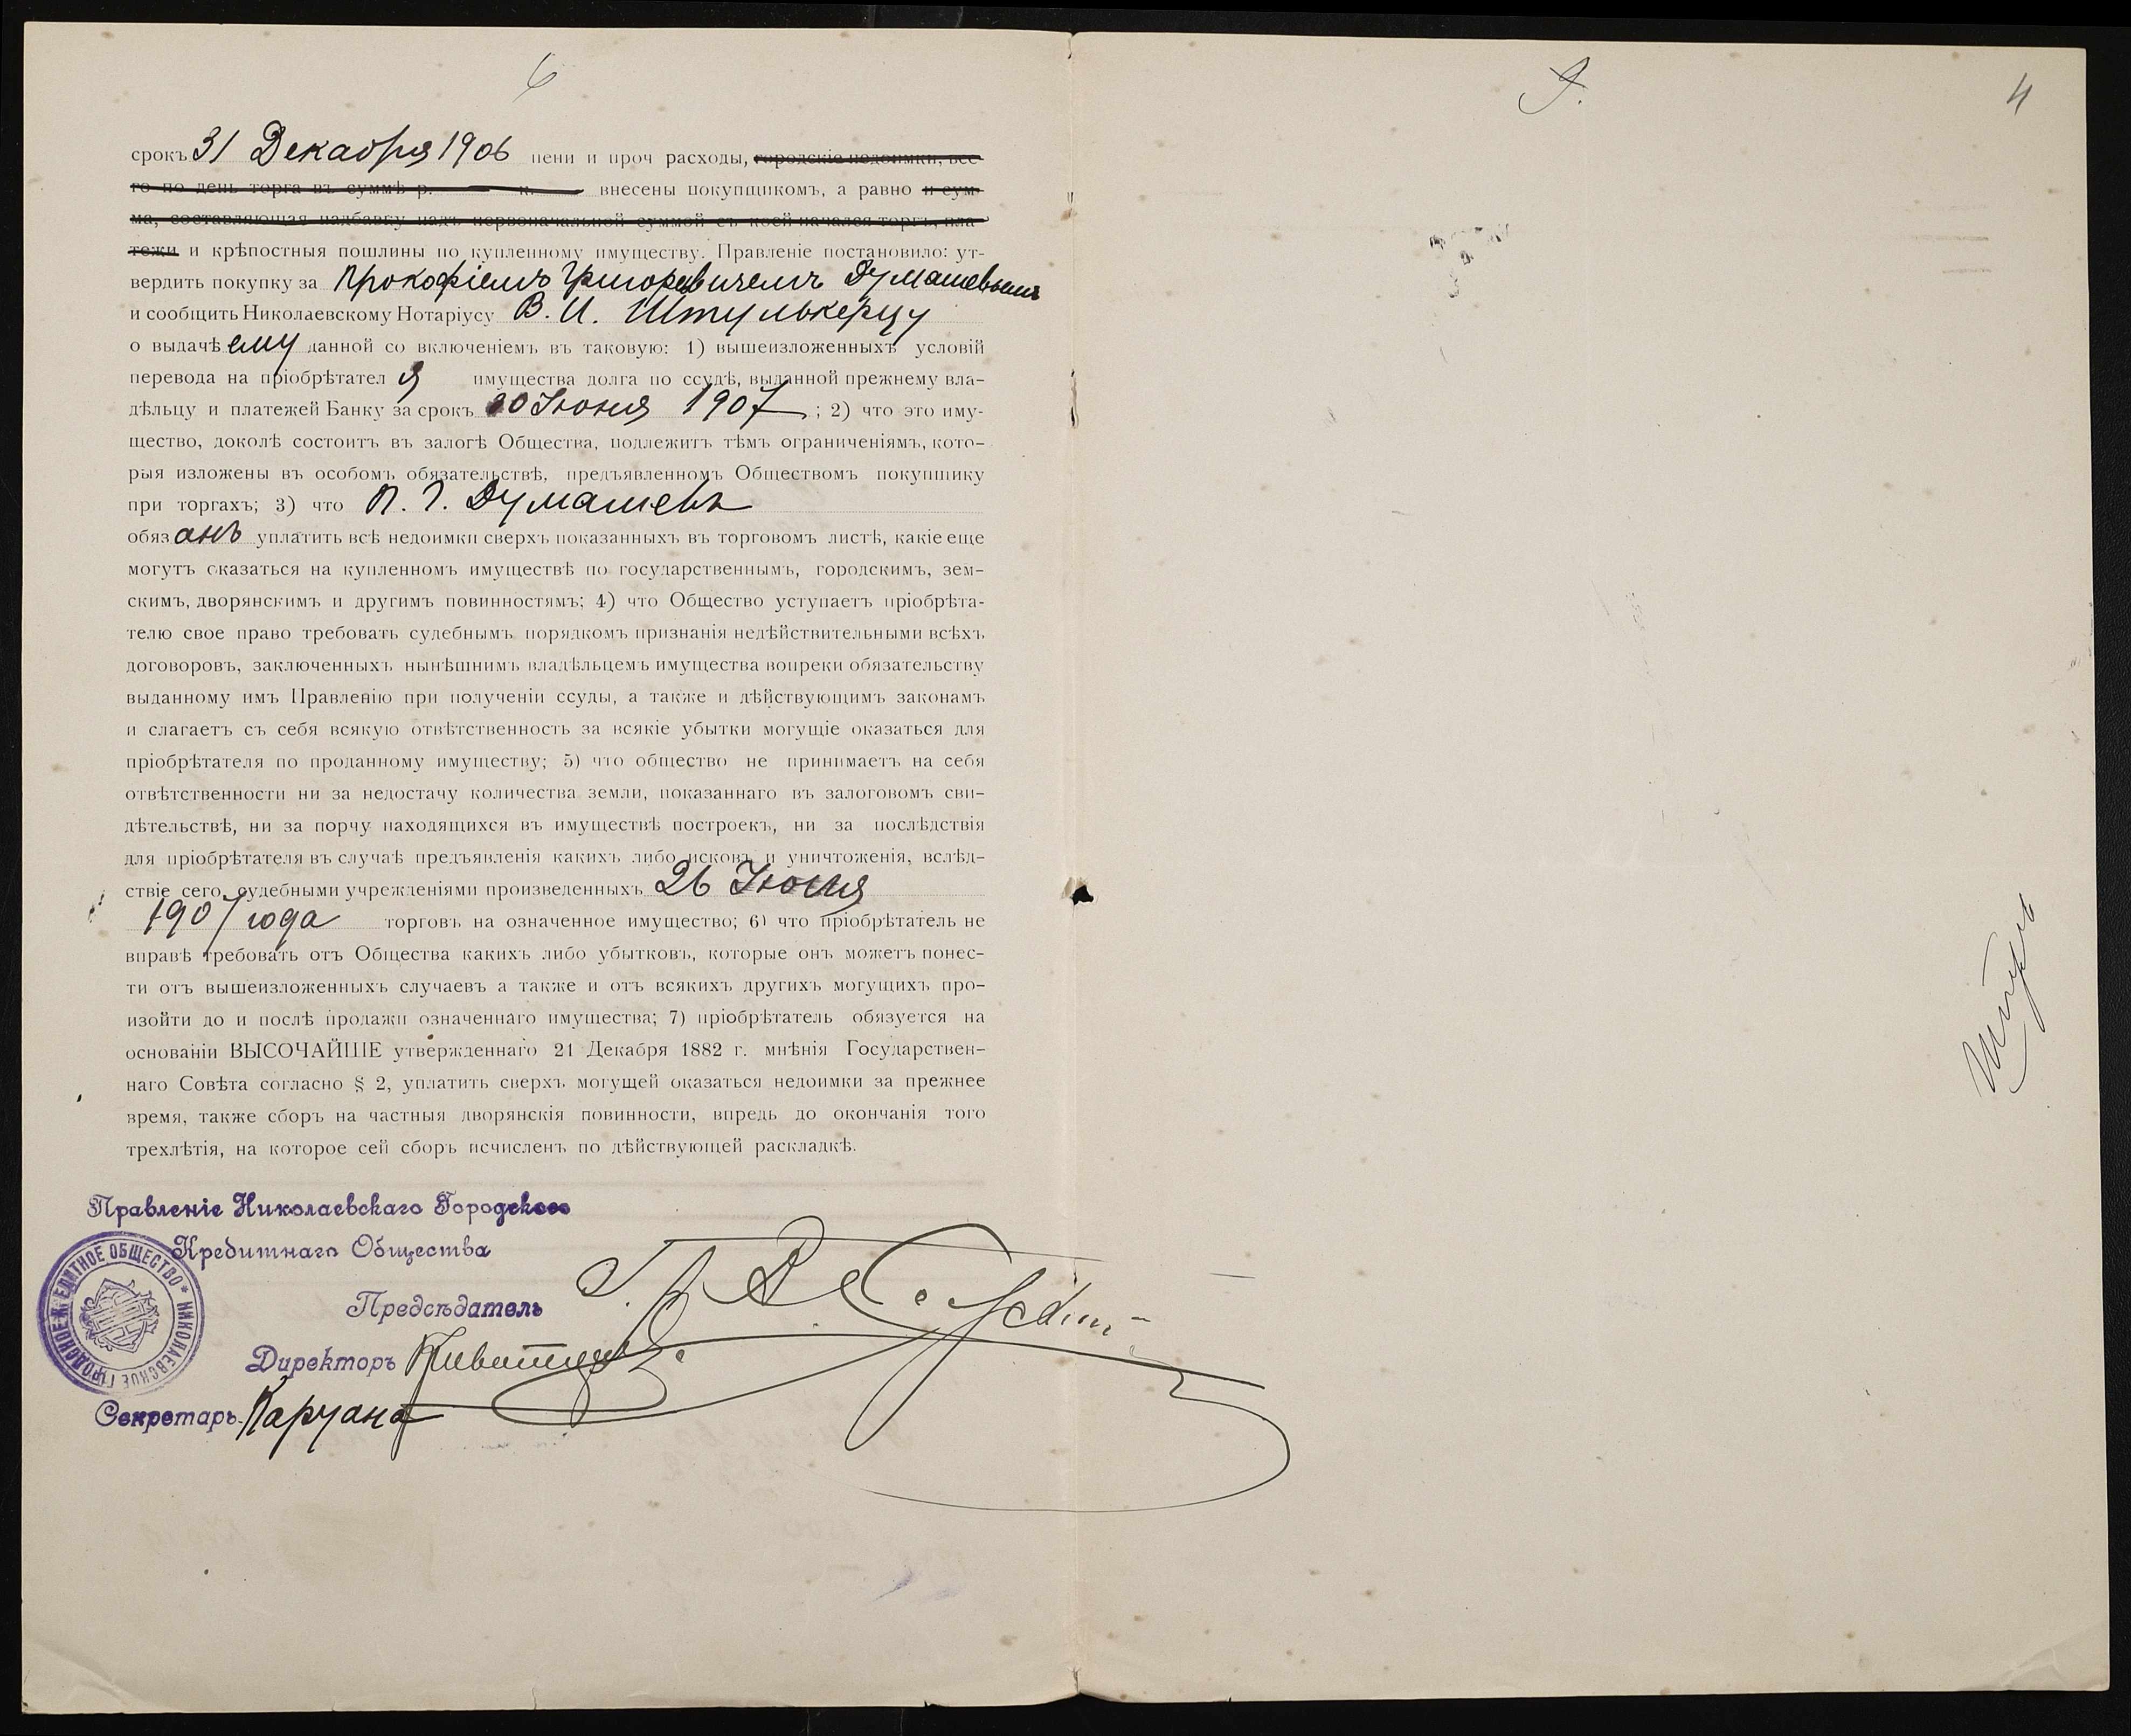 6
срокъ 31 Декабря 1906 пени и проч расходы, городскіе недоимки, все-
го по день торга въ суммѣ р. к. внесены покупщикомъ, а равно и сум-
ма, составляющая надбавку надъ первоначальной суммой съ коей начался торгъ, пла-
тежи и крѣпостныя пошлины по купленному имуществу. Правленіе постановило: ут-
вердить покупку за Прокофіемъ Григорьевичемъ Думашевымъ
и сообщить Николаевскому Нотаріусу В. И. Штулькерцу
о выдачѣ ему данной со включеніемъ въ таковую: 1) вышеизложенныхъ условій
перевода на пріобрѣтателя имущества долга по ссудѣ, выданной прежнему вла-
дѣльцу и платежей Банку за срокъ 30 Іюня 1907; 2) что это иму-
щество, доколѣ состоитъ въ залогѣ Общества, подлежитъ тѣмъ ограниченіямъ, кото-
рыя изложены въ особомъ обязательствѣ, предъявленномъ Обществомъ покупщику
при торгахъ; 3) что П. Г. Думашевъ
обязанъ уплатить всѣ недоимки сверхъ показанныхъ въ торговомъ листѣ, какіе еще
могутъ оказаться на купленномъ имуществѣ по государственнымъ, городскимъ, зем-
скимъ, дворянскимъ и другимъ повинностямъ; 4) что Общество уступаетъ пріобрѣта-
телю свое право требовать судебнымъ порядкомъ признанія недѣйствительными всѣхъ
договоровъ, заключенныхъ нынѣшнимъ владѣльцемъ имущества вопреки обязательству
выданному имъ Правленію при полученіи ссуды, а также и дѣйствующимъ законамъ
и слагаетъ съ себя всякую отвѣтственность за всякіе убытки могущіе оказаться для
пріобрѣтателя по проданному имуществу; 5) что общество не принимаетъ на себя
отвѣтственности ни за недостачу количества земли, показаннаго въ залоговомъ сви-
дѣтельствѣ, ни за порчу находящихся въ имуществѣ построекъ, ни за послѣдствія
для пріобрѣтателя въ случаѣ предъявленія какихъ либо исковъ и уничтоженія, вслѣд-
ствіе сего, судебными учрежденіями произведенныхъ 26 Іюня
1907 года торговъ на означенное имущество; 6) что пріобрѣтатель не
вправѣ требовать отъ Общества какихъ либо убытковъ, которые онъ можетъ понес-
ти отъ вышеизложенныхъ случаевъ а также и отъ всякихъ другихъ могущихъ про-
изойти до и послѣ продажи означеннаго имущества; 7) пріобрѣтатель обязуется на
основаніи ВЫСОЧАЙШЕ утвержденнаго 21 Декабря 1882 г. мнѣнія Государствен-
наго Совѣта согласно § 2, уплатить сверхъ могущей оказаться недоимки за прежнее
время, также сборъ на частныя дворянскія повинности, впредь до окончанія того
трехлѣтія, на которое сей сборъ исчисленъ по дѣйствующей раскладкѣ.
Правленіе Николаевскаго Городского
Кредитнаго Общества
НИКОЛАЕВСКОЕ ГОРОДСКОЕ КРЕДИТНОЕ ОБЩЕСТВО
Предсѣдатель
Директоръ
Секретарь Каруана
4